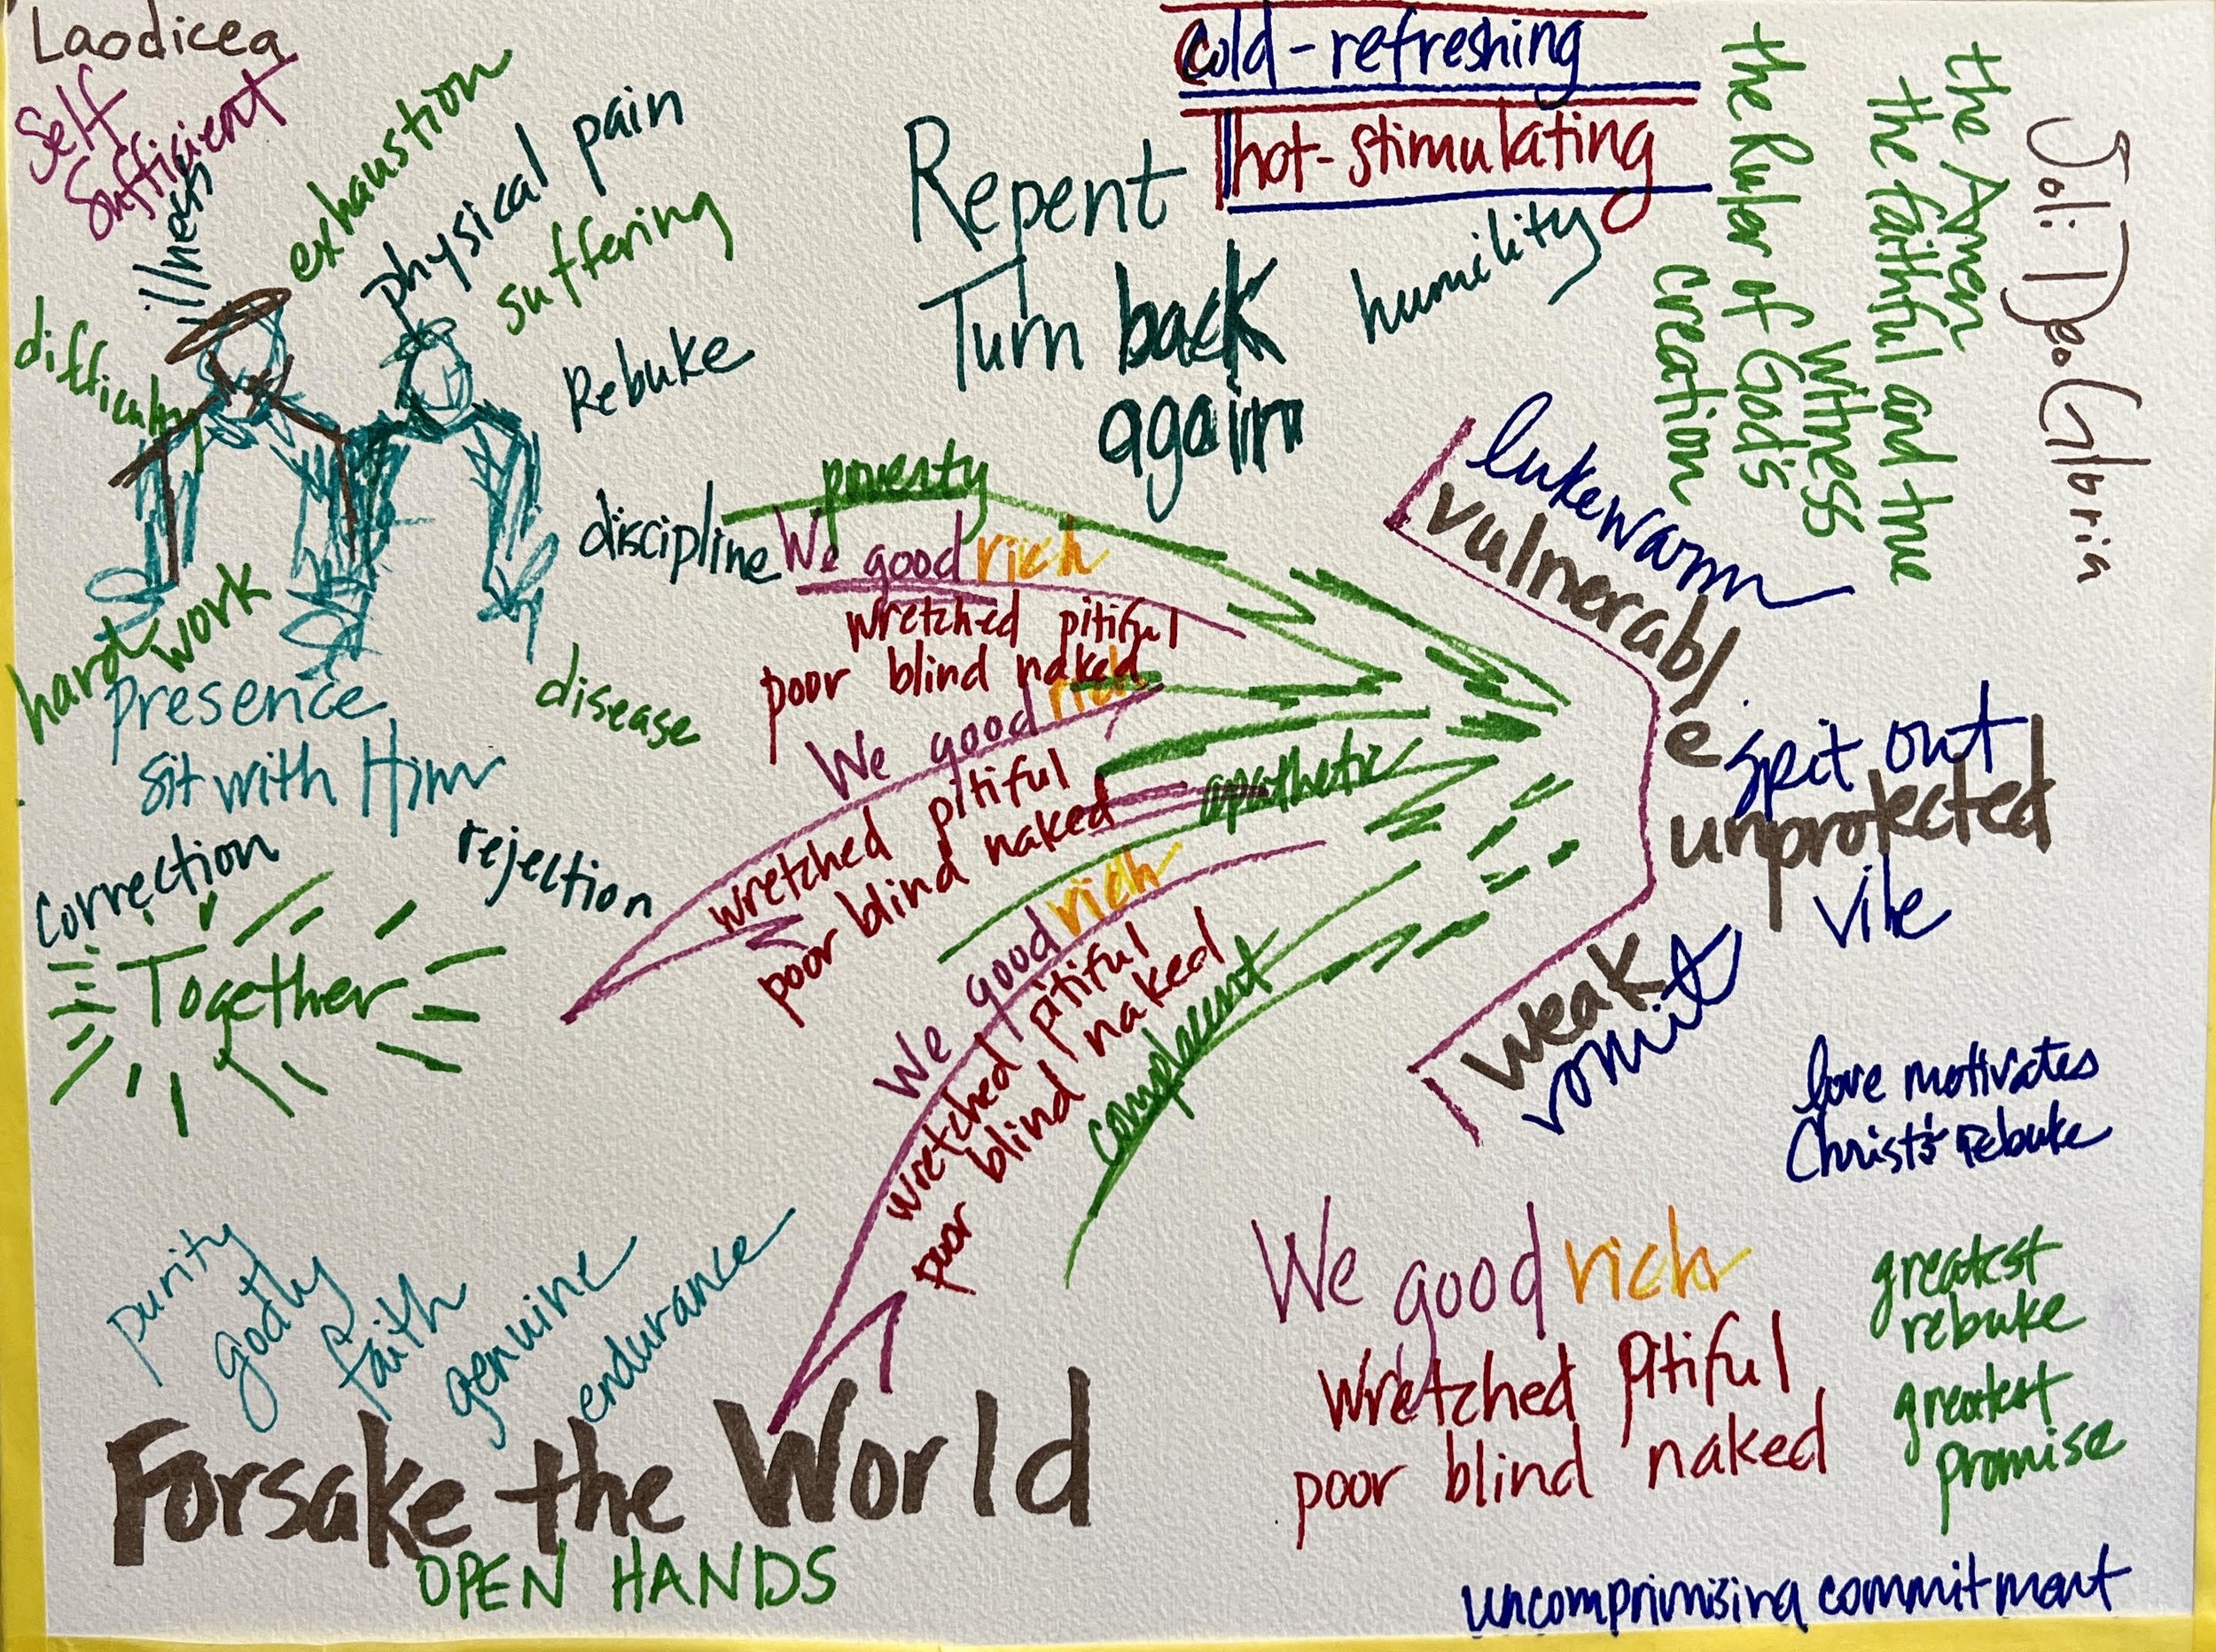 Laodicea
Self
Sufficient
illness
exhaustion
physical pain
suffering
difficulty
Rebuke
discipline
hard work
Presence
sit with Him
disease
correction
rejection
Together
Repent
Turn back
again
cold-refreshing
hot-stimulating
humility
the Amen
the faithful and true
witness
the Ruler of God's
Creation
Soli Deo Gloria
poverty
We good rich
wretched pitiful
poor blind naked
We good rich
wretched pitiful
poor blind naked
apathetic
We good rich
wretched pitiful
poor blind naked
complacent
lukewarm
vulnerable
spit out
unprotected
vile
weak
vomit
love motivates
Christ's rebuke
We good rich
wretched pitiful
poor blind naked
greatest
rebuke
greatest
promise
purity
godly
faith
genuine
endurance
Forsake the World
OPEN HANDS
uncomprimising commitment